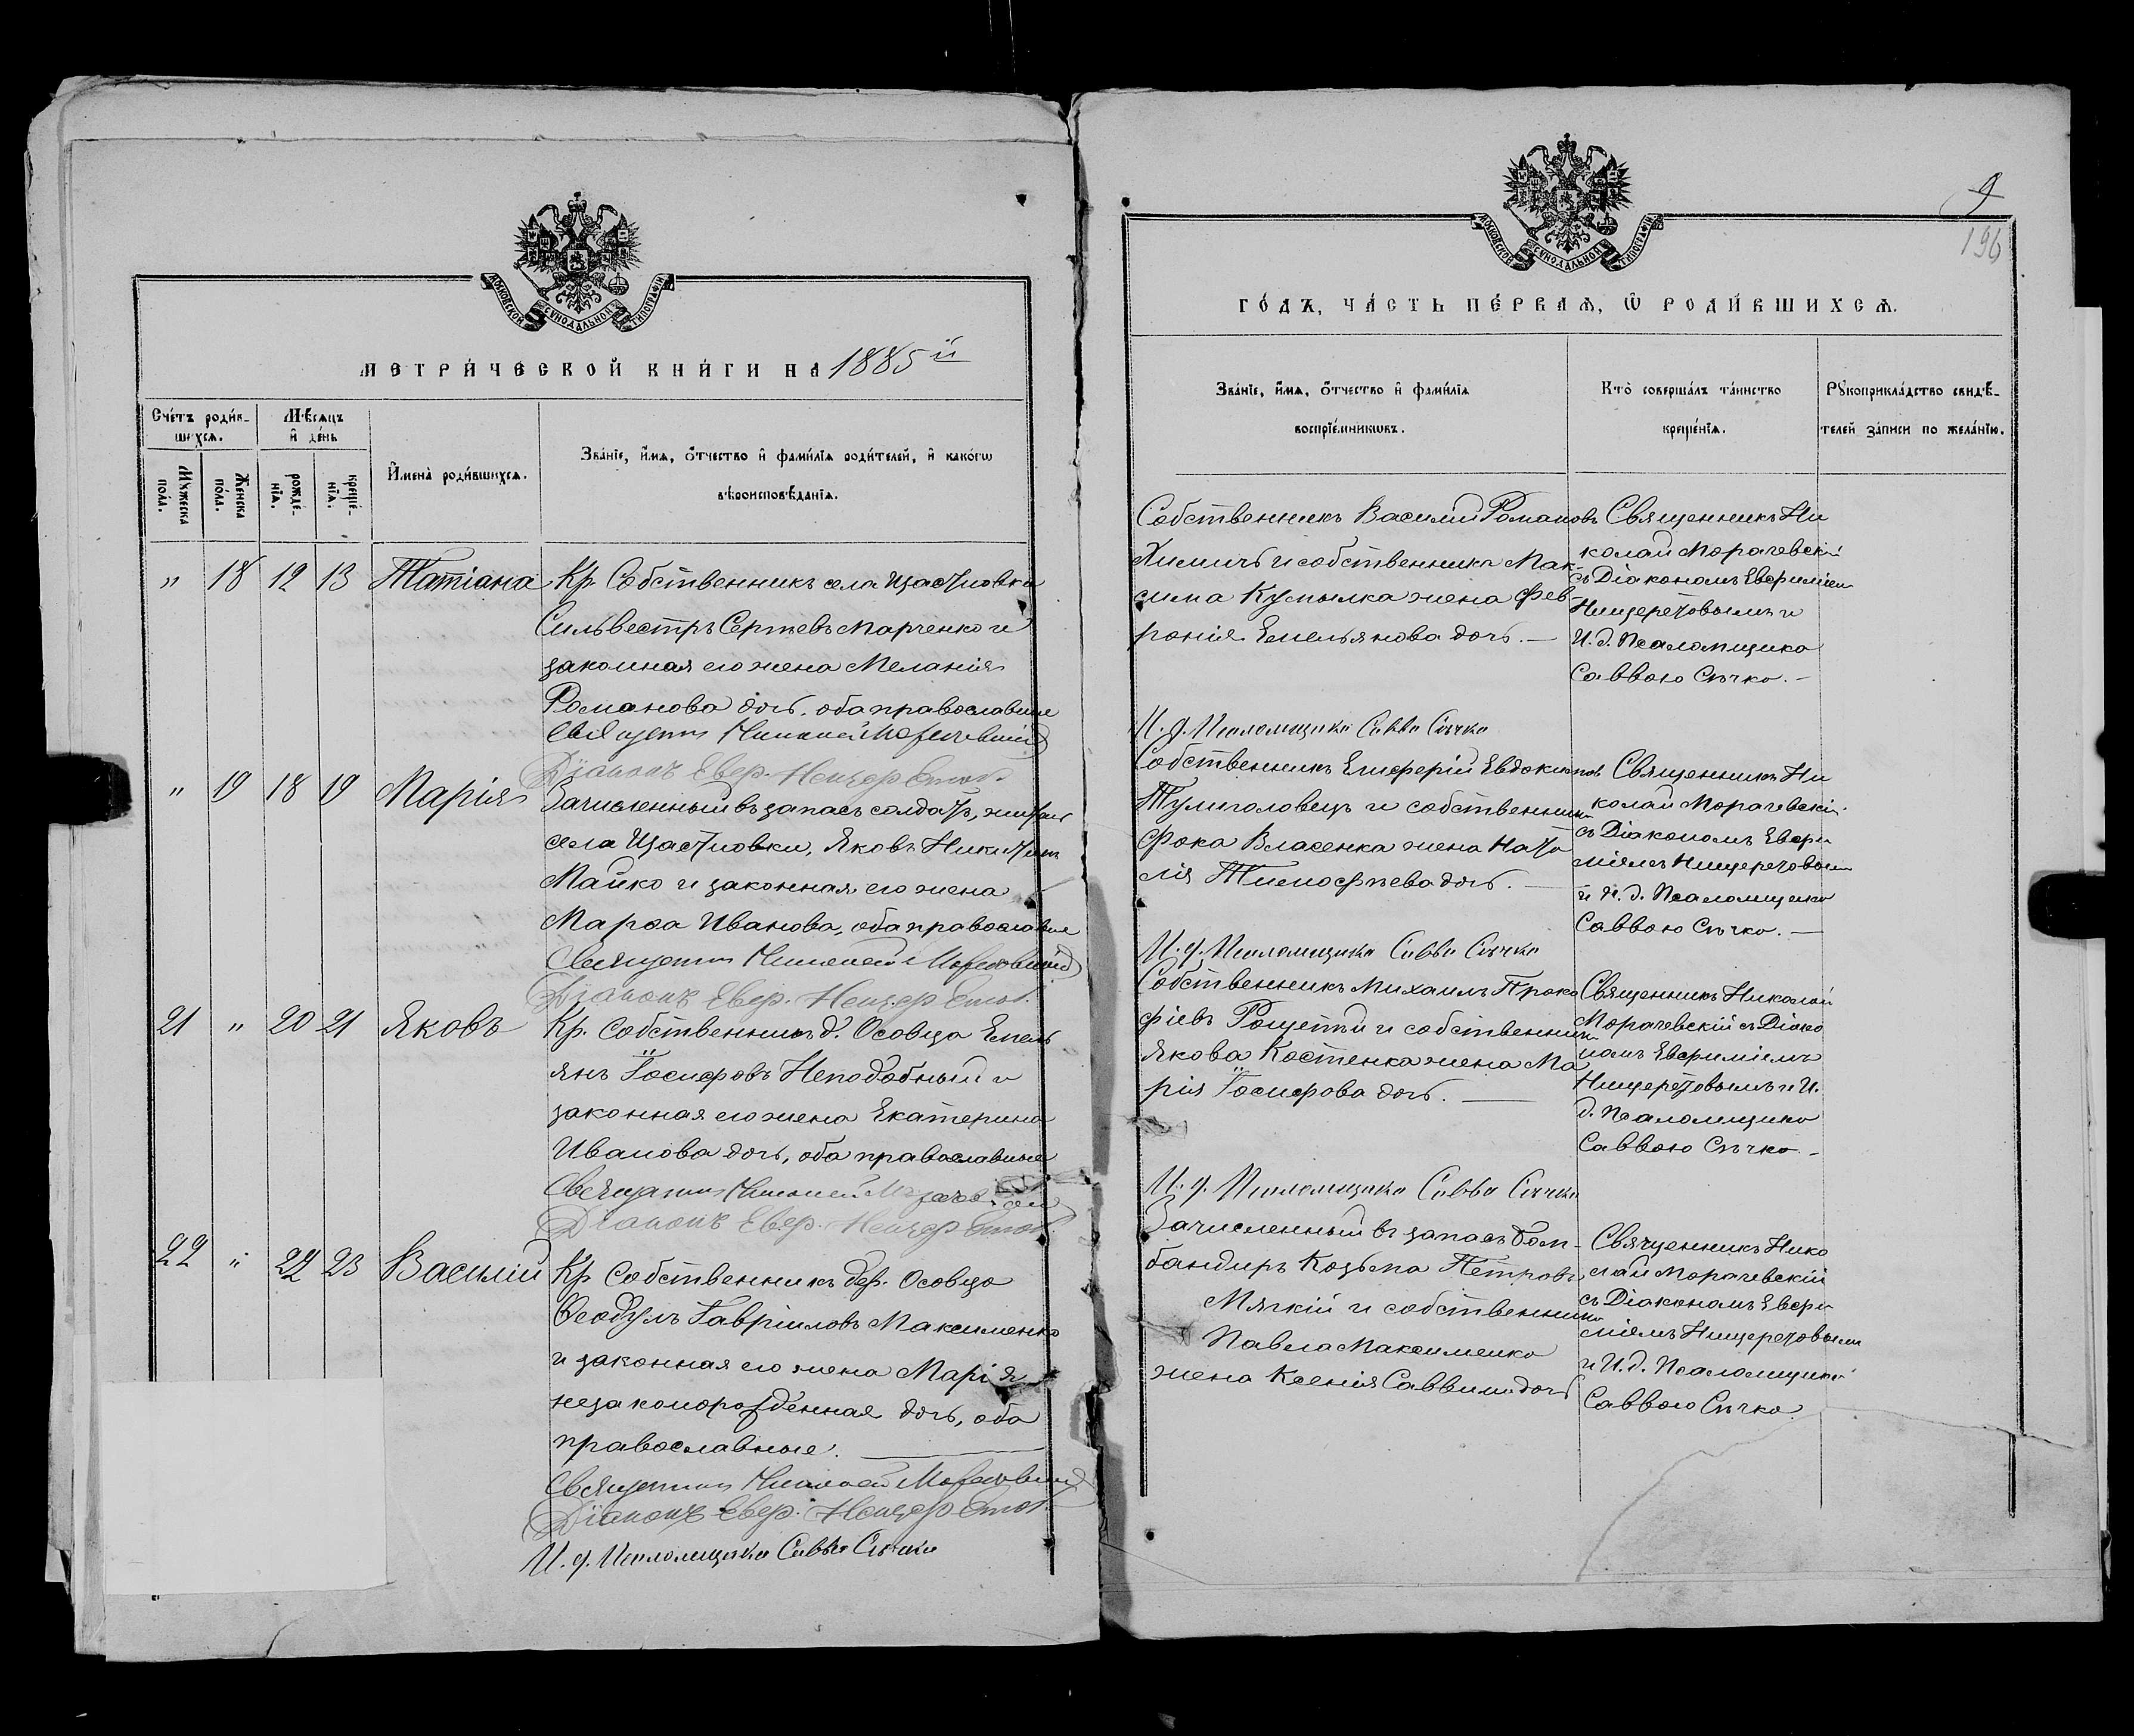 МОСКОВСКОЙ СѴНОДАЛЬНОЙ ТИПОГРАФІИ
МЕТРИ́ЧЕСКОЙ КНИ́ГИ НА 1885й
Сче́тъ роди́в-
шихсѧ.
Мꙋ́жеска по́ла.
Же́нска по́ла.
Мѣ́сѧцъ
и҆ де́нь
рожде́-
нїѧ.
креще́-
нїѧ.
И҆мена̀ роди́вшихсѧ.
Зва́нїе, и҆́мѧ, ѻ҆́тчество и҆ фами́лїѧ роди́телей, и҆ како́гѡ
вѣроисповѣ́данїѧ.
" 18 12 13 Татіана
Кр. Собственникъ села Щастновка
Сильвестръ Сергѣевъ Марченко и
законная его жена Меланія
Романова дочь. оба православные
Священникъ Николай Морачевскій
Діаконъ Евф.
" 19 18 19 Марія
Зачисленный въ запасъ солдатъ, житель
села Щастновки, Яковъ Никитинъ
Майко и законная его жена
Марѳа Иванова, оба православные
Священникъ Николай Морачевскій
Діаконъ Евф.
21 " 20 21 Яковъ
Кр. Собственникъ д. Осовца Емель
янъ Іосифовъ Неподобный и
законная его жена Екатерина
Иванова дочь, оба православные
Священникъ Николай
Діаконъ Евф.
22 " 22 23 Василій
Кр. Собственникъ дер. Осовца
Ѳеодулъ Гавріиловъ Максименко
и законная его жена Марія
незаконорожденная дочь, оба
православные.
Священникъ Николай Морачевскій
Діаконъ Евф.
И. д. Псаломщика Савва Сѣчко
9
196
МОСКОВСКОЙ СѴНОДАЛЬНОЙ ТИПОГРАФІИ
ГО́ДЪ, ЧА́СТЬ ПЕ́РВАѦ, Ѡ҆ РОДИ́ВШИХСѦ.
Зва́нїе, и҆́мѧ, ѻ҆́тчество и҆ фами́лїѧ
воспрїе́мникѡвъ.
Кто̀ соверша́лъ та́инство
креще́нїѧ.
Рꙋкоприкла́дство свидѣ́-
телей за́писи по жела́нїю.
Собственникъ Василій Романовъ
Химичъ и собственника Мак-
сима Кумылка жена Фев-
ронія Емельянова дочь. —
Священникъ Ни
колай Морачевскій
съ Діакономъ Евфиміемъ
Нищеретовымъ и
И. д. Псаломщика
Саввою Сѣчко. —
И. д. Псаломщика Савва Сѣчко
Собственникъ Елиферій Евдокимовъ
Тулиголовецъ и собственника
Фока Власенка жена Ната
лія Тимофѣева дочь. —
Священникъ Ни
колай Морачевскій
съ Діакономъ Евфи
міемъ Нищеретовымъ
и И. д. Псаломщика
Саввою Сѣчко. —
И. д. Псаломщика Савва Сѣчко
Собственникъ Михаилъ Проко
фіевъ и собственника
Якова Костенка жена Ма
рія Іосифова дочь. —
Священникъ Николай
Морачевскій съ Діако
номъ Евфиміемъ
Нищеретовымъ и И.
д. Псаломщика
Саввою Сѣчко. —
И. д. Псаломщика Савва Сѣчко
Зачисленный въ запасъ бом-
бандиръ Козьма Петровъ
Мягкій и собственника
Павела Максименко
жена Ксенія Саввина дочь
Священникъ Нико
лай Морачевскій
съ Діакономъ Евфи
міемъ Нищеретовымъ
и И. д. Псаломщика
Саввою Сѣчко.